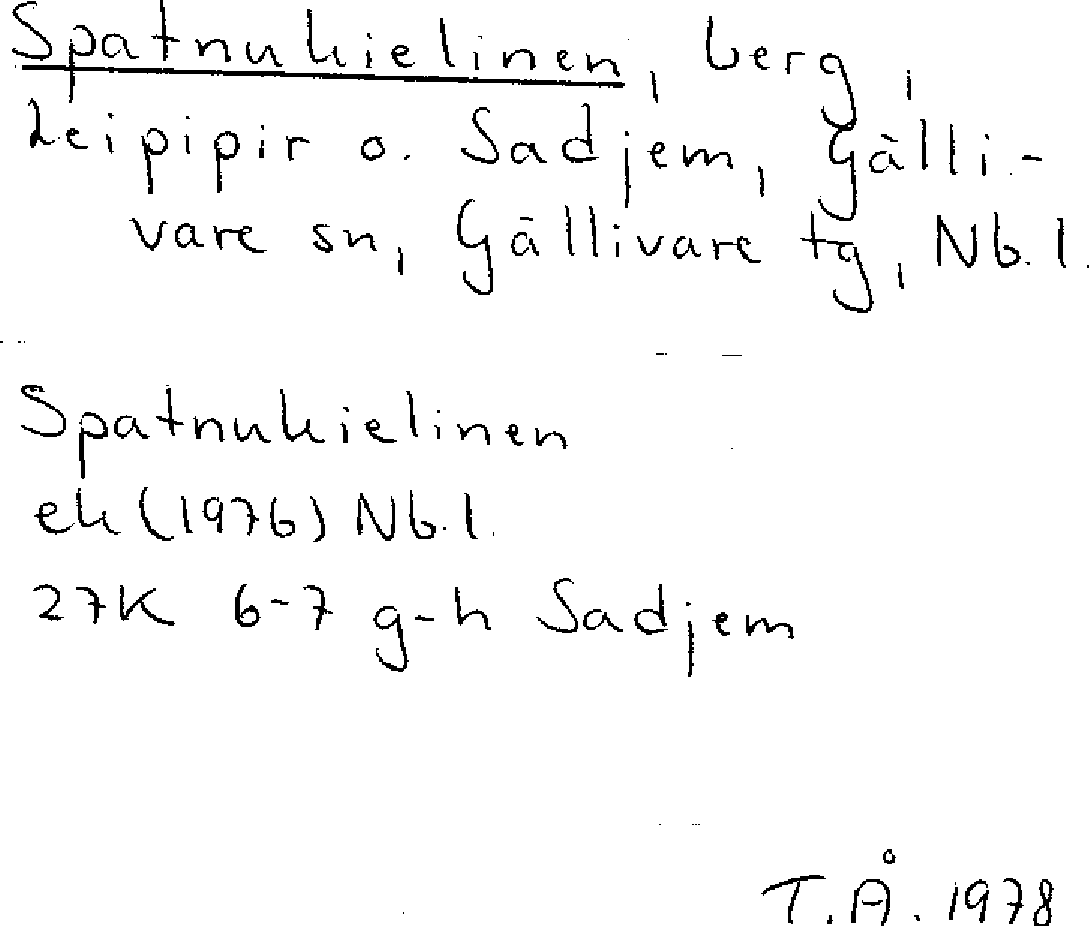 Spatnukielinen, berg,
Leipipir o. Sadjem, Gälli-
vare sn, Gällivare tg, Nb.l.
Spatnukielinen
ek (1976) Nb.l.
27K 6-7 g-h Sadjem
T.Å. 1978